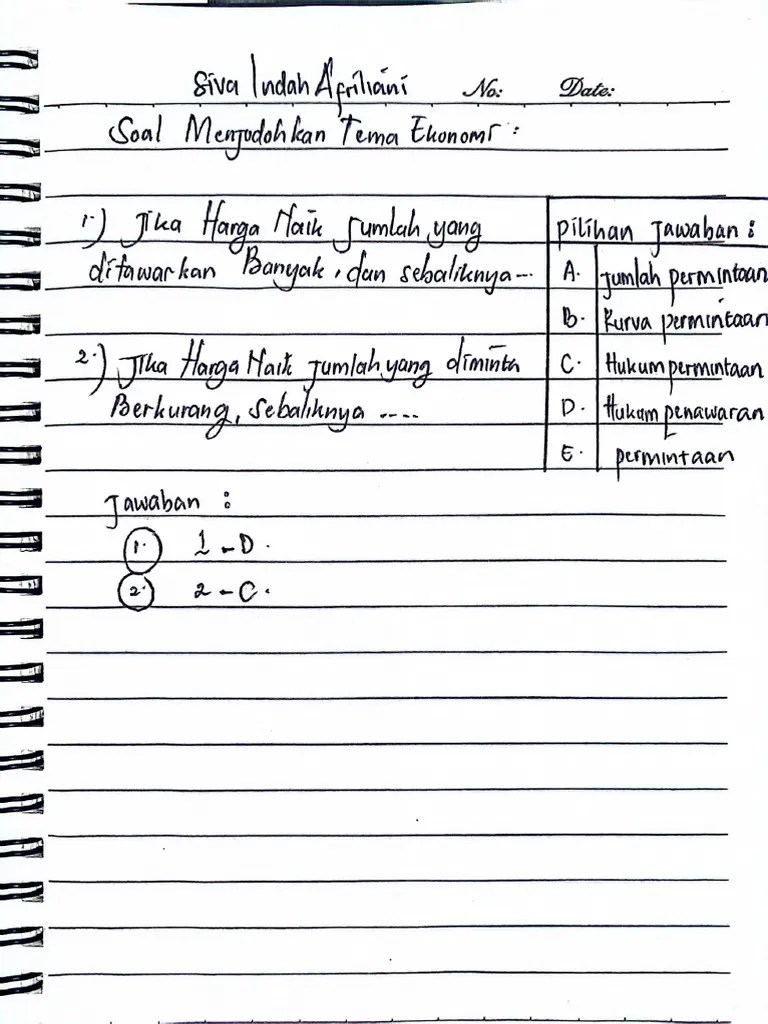 Siva Indah Afriliani No: Date:
Soal Menjodohkan Tema Ekonomi :
1.) Jika Harga Naik jumlah yang
ditawarkan Banyak, dan sebaliknya...
2.) Jika Harga Naik jumlah yang diminta
Berkurang, sebaliknya ....
Pilihan Jawaban :
A. Jumlah permintaan
B. Kurva permintaan
C. Hukum permintaan
D. Hukum penawaran
E. permintaan
Jawaban :
1. 1 - D.
2. 2 - C.